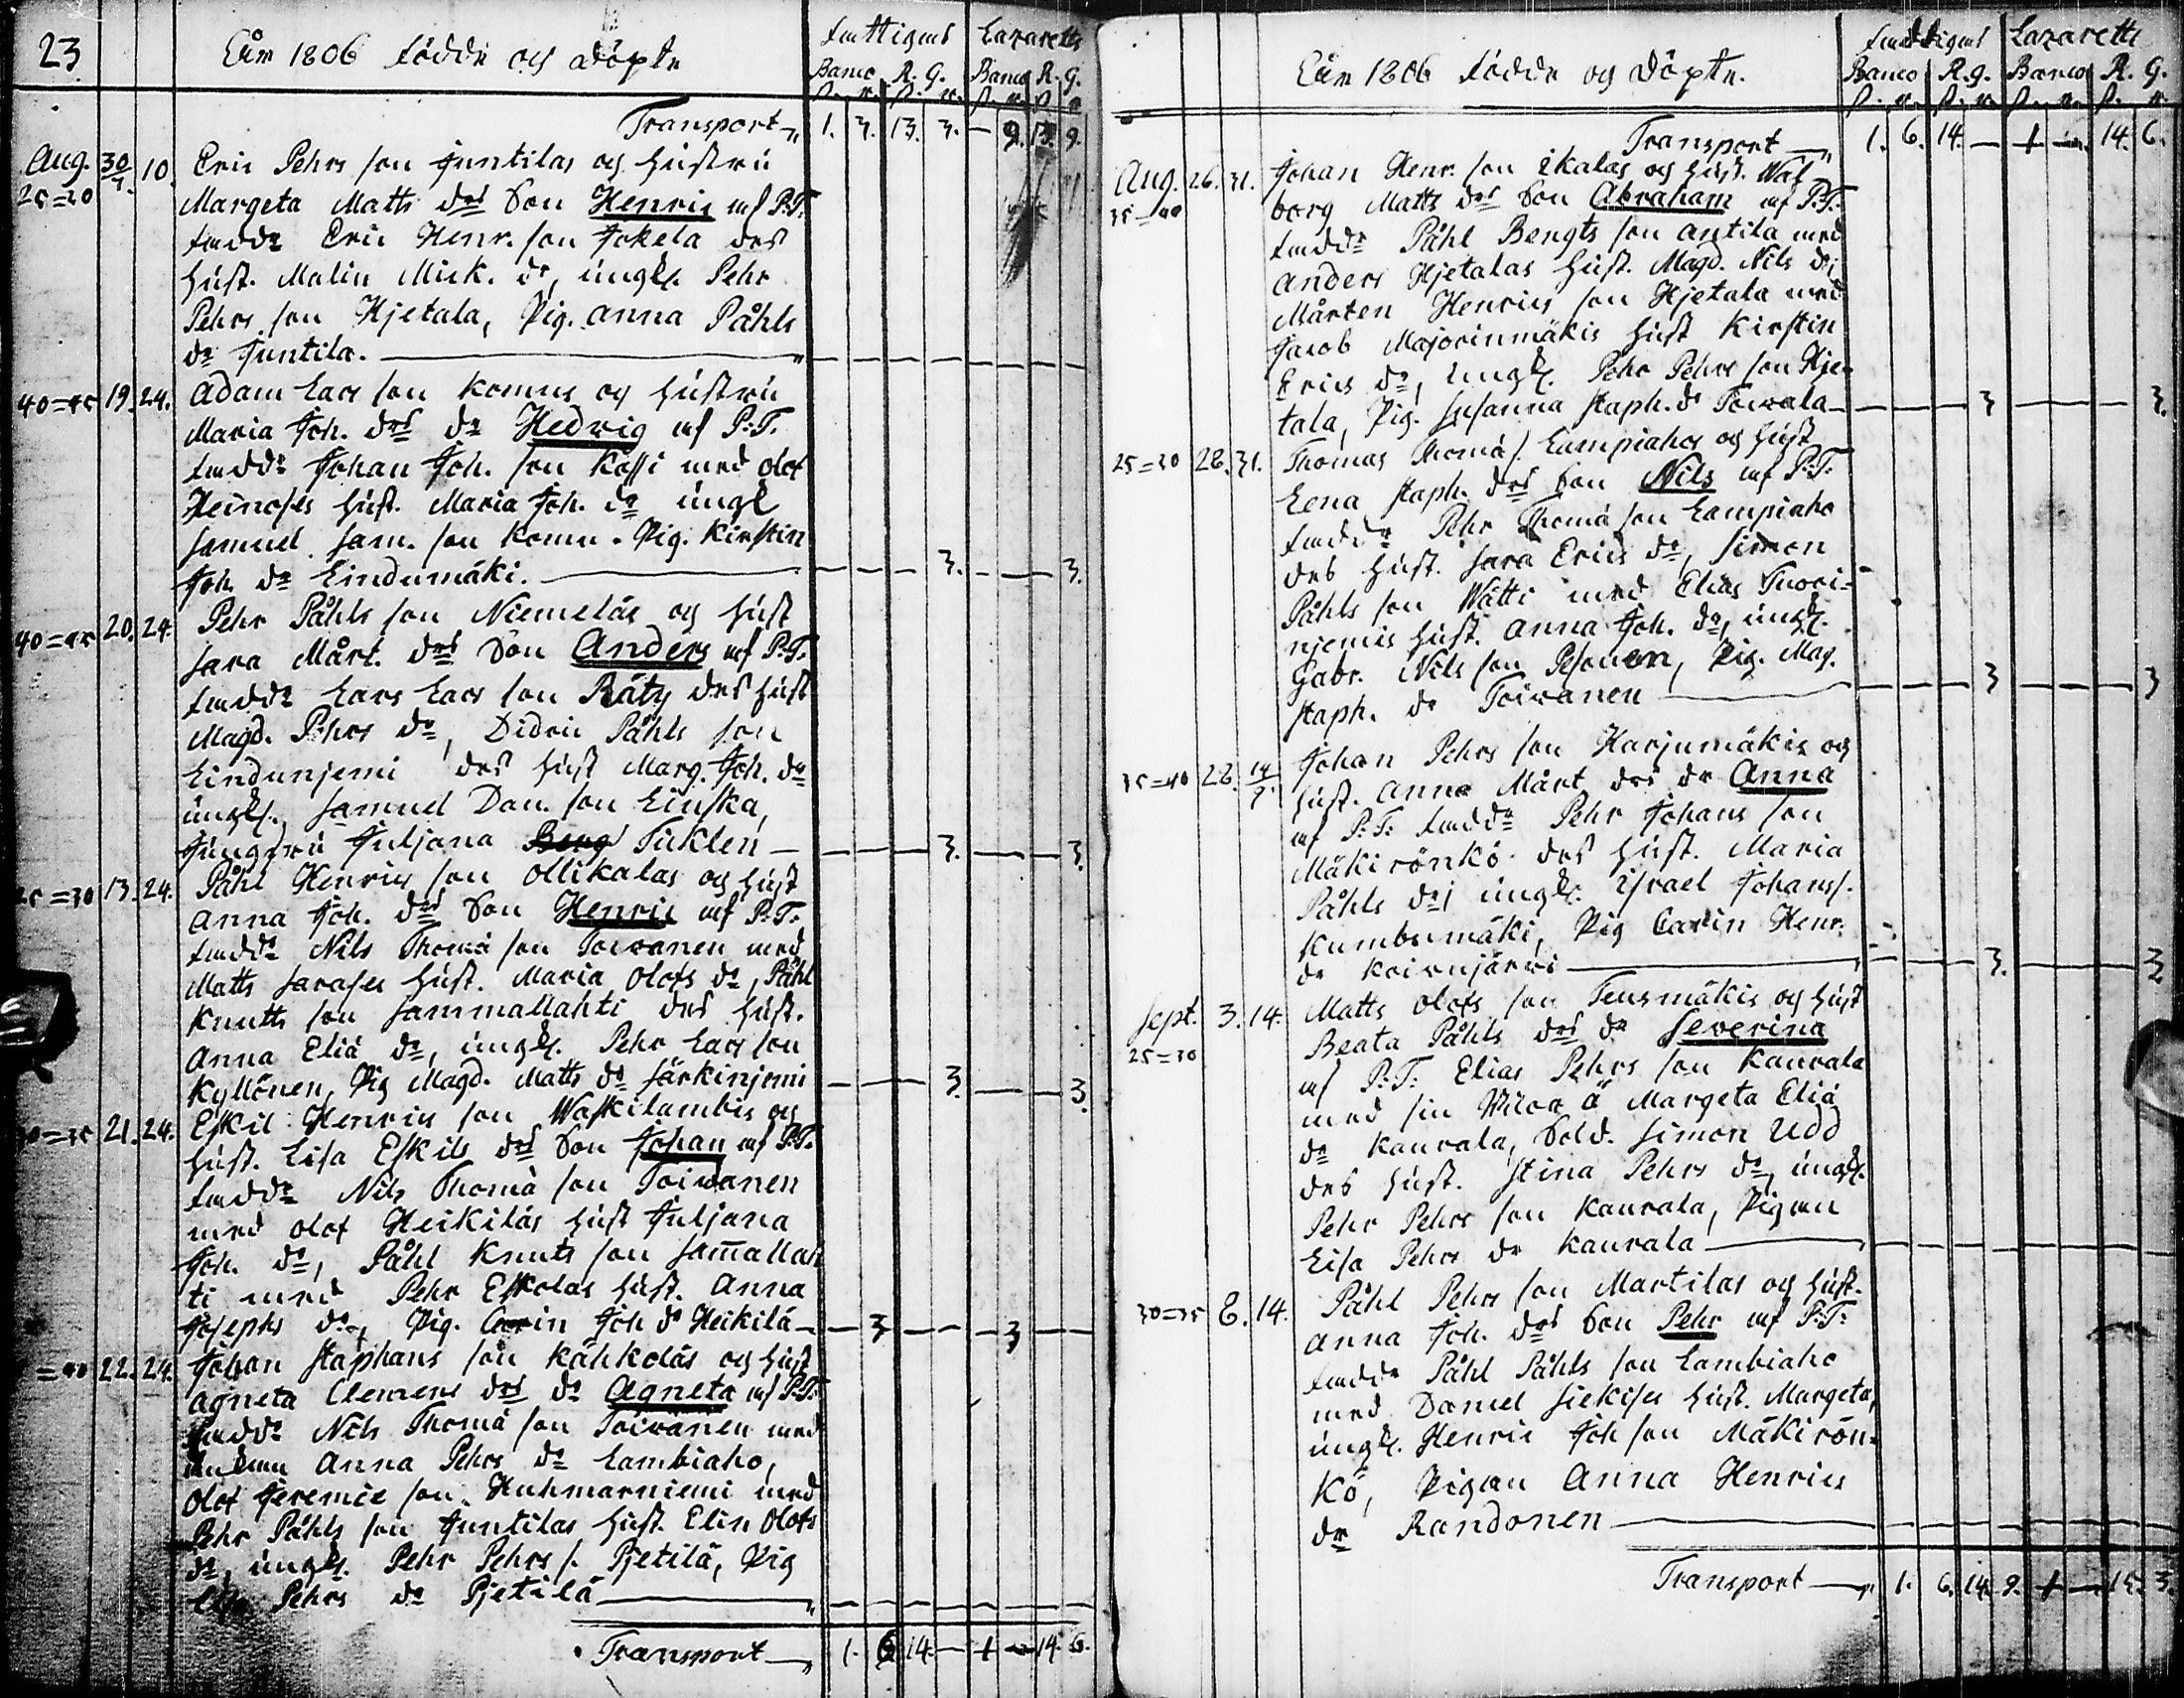 23
Åår 1806 födde og döpte
fattigas Lazaretts
Banco R. G. Banco R. G.
Transport 1. 3. 13. 3. — 9. 13. 9.
Aug. 30/7. 10. Eric Pehrs son Juntilas og hustru
25=20 Margeta Matts des Son Henric af P.T.
fadd. Eric Henr. son Jokela des
Hust. Malin Mick. dr, ungk. Pehr
Pehrs son Hjetala, Pig. Anna Påhls
dr Juntila.
40=45 19. 24. Adam Lars son Komus og hustru
Maria Joh. des dr Hedvig af P.T.
fadd. Johan Joh. son Kassi med Olof
Heinoses hust. Maria Joh. dr ungk
Samuel Sam. son Komu. Pig. Kirstin
Joh. dr Lindumäki. 3. 3.
40=45 20. 24. Pehr Påhls son Niemeläs og Hust
Sara Mårt. des Son Anders af P.T.
fadd. Lars Lars son Räty des hust
Magd. Pehrs dr, Didric Påhls son
Lindunjemi des hust Marg. Joh. dr
ungk. Samuel Dan. son Linska,
Jungfru Juljana Berg Tuklen 3. 3.
25=30 13. 24. Påhl Henrics son Ollikalas og hust
Anna Joh. des Son Henric af P.T.
fadd. Nils Thomä son Toivanen med
Matts Sarases hust. Maria Olofs dr, Påhl
Knutts son Sammallahti des hust.
Anna Eliä dr, ungk. Pehr Lars son
Kyllönen, Pig Magd. Matts dr Särkinjemi 3. 3.
21. 24. Eskil Henrics son Waskilambis og
hust. Lisa Eskils des Son Johan af P.T.
fadd. Nils Thomä son Toivanen
med Olof Heikiläs hust Juljana
Joh. dr, Påhl Knuts son Sam̄allah
ti med Pehr Eskolas hust. Anna
Josephs dr, Pig. Carin Joh dr Heikilä 3 3
=40 22. 24. Johan Staphans son Kähköläs og hust
Agneta Clemens des dr Agneta af P.T.
fadd. Nils Thomä son Toivanen med
Anna Pehrs dr Lambiaho,
Olof Jeremiæ son Huhmarniemi med
Pehr Påhls son Juntilas hust. Elin Olofs
dr, ungk. Pehr Pehrs s. Pjetilä, Pig
Pehrs dr Pjetilä
Transport 1. 6 14. — 1 — 14. 6.
Åår 1806 födde og döpte.
Lazaretts
Banco R. G. Banco R. G.
Transport 1. 6. 14. — 1 — 14. 6.
Aug. 26. 31. Johan Henr. son Ikalas og hust. Wal-
35=40 borg Matts des Son Abraham af P.T.
fadd. Påhl Bengts son Antila med
Anders Hjetalas hust. Magd. Nils dr,
Mårten Henrics son Hjetala med
Jacob Majorinmäkis hust Kirstin
Erics dr, ungk. Pehr Pehrs son Hje-
tala, Pig. Susanna Staph. dr Toivala 3 3.
25=30 28. 31. Thomas Thomä s. Lampiahos og hust
Lena Staph. des Son Nils af P.T.
fadd. Pehr Thomä son Lampiaho
des hust. Sara Erics dr, Simon
Påhls son Wätti med Elias Tuori-
njemis hust. Anna Joh. dr, ungk.
Gabr. Nils son Pesonen, Pig. Mag.
Staph. dr Toivanen 3 3
35=40 28. 14/9. Johan Pehrs son Harjumäkis og
hust. Anna Mårt des dr Anna
af P.T. fadd. Pehr Johans son
Mäkirönkö des hust. Maria
Påhls dr, ungk. Israel Johans s.
Kumbumäki, Pig Carin Henr.
dr Koirujärvi 3. 3.
Sept. 3. 14. Matts Olofs son Teusmäkis og hust
25=30 Beata Påhls des dr Severina
af P.T. Elias Pehrs son Kaurala
med sin Margeta Eliä
dr Kaurala, Sold. Simon Udd
des hust. Stina Pehrs dr, ungk.
Pehr Pehrs son Kaurala, Pigan
Lisa Pehrs dr Kaurala
30=35 6. 14. Påhl Pehrs son Martilas og hust.
Anna Joh. des Son Pehr af P.T.
fadd. Påhl Påhls son Lambiaho
med Daniel Siekises hust. Margeta,
ungk. Henric Joh son Mäkirön-
kö, Pigan Anna Henrics
dr Randonen
Transport 1. 6. 14. 9. 1 — 15. 3.